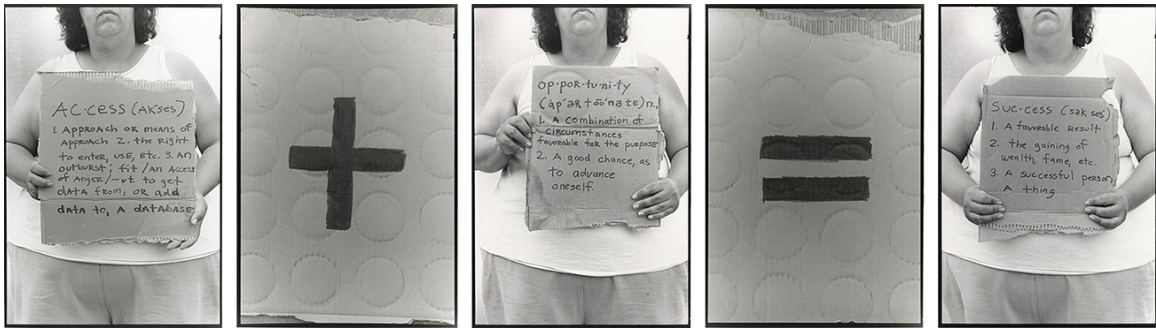 AC·cess (AK'ses)
1. Approach or means of
Approach 2. the right
to enter, use, etc. 3. An
outburst; fit / An Access
of Anger /–vt. to get
data from, or add
data to, a database
+
op·por·tu·ni·ty
(äp'ər to͞o'nə tē) n.,
1. A combination of
circumstances
favorable for the purpose
2. A good chance, as
to advance
oneself.
=
Suc·cess (sək ses')
1. A favorable result
2. the gaining of
wealth, fame, etc.
3. A successful person,
A thing